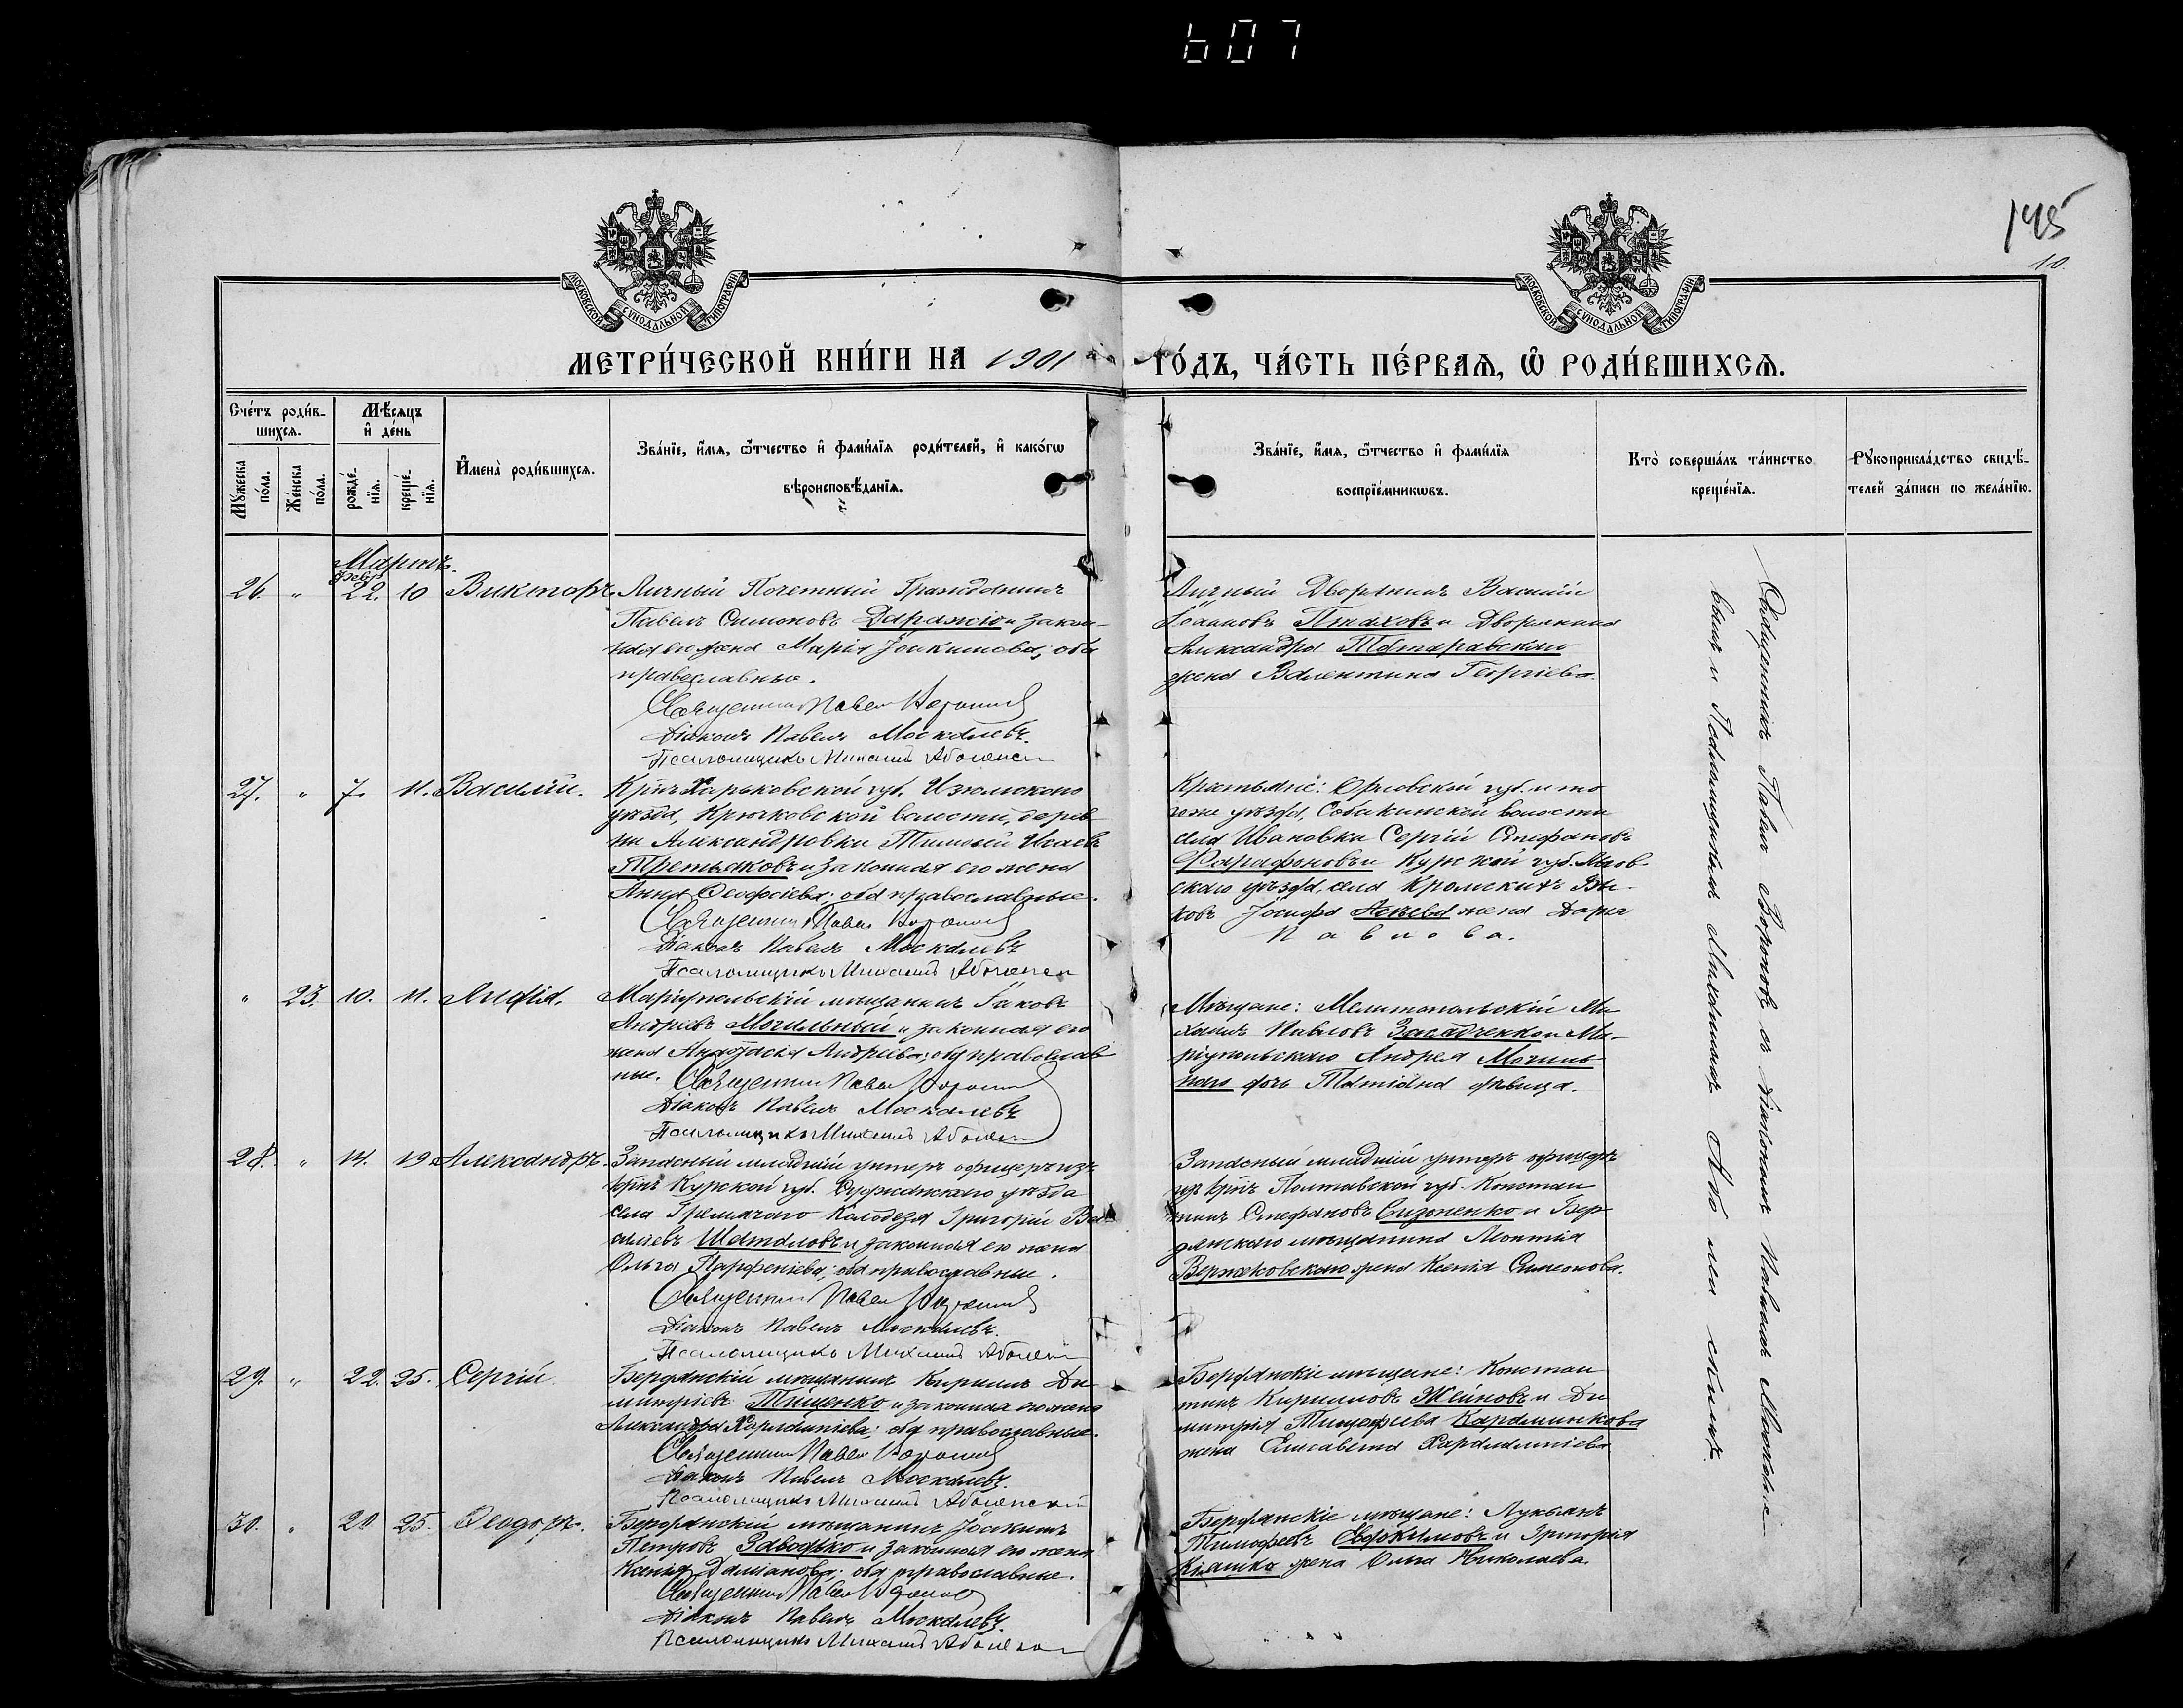 607
145
10.
МОСКОВСКОЙ СѴНОДАЛЬНОЙ ТИПОГРАФІИ
МОСКОВСКОЙ СѴНОДАЛЬНОЙ ТИПОГРАФІИ
МЕТРИ́ЧЕСКОЙ КНИ́ГИ НА 1901 ГО́ДЪ, ЧА́СТЬ ПЕ́РВАѦ, Ѡ РОДИ́ВШИХСѦ.
Сче́тъ роди́в-
шихсѧ.
Мѣ́сѧцъ
и де́нь
Мꙋ́жеска
по́ла.
Же́нска
по́ла.
рожде́-
нїѧ.
креще́-
нїѧ.
Имена̀ роди́вшихсѧ.
Зва́нїе, и́мѧ, ѻ҆́тчество и фами́лїѧ роди́телей, и како́гѡ
вѣроисповѣ́данїѧ.
Зва́нїе, и́мѧ, ѻ҆́тчество и фами́лїѧ
воспрїе́мникѡвъ.
Кто̀ соверша́лъ та́инство
креще́нїѧ.
Рꙋкоприкла́дство свидѣ́-
телей за́писи по жела́нїю.
Мартъ.
Февр.
26. " 22. 10 Викторъ.
Личный Почетный Гражданинъ
Павелъ Симоновъ и закон-
ная его жена Марія Іоакимова; оба
православные.
Священникъ Павелъ Вороновъ
Діаконъ Павелъ Москалевъ.
Псаломщикъ Михаилъ
Личный Дворянинъ Василій
Іоанновъ Птаховъ и Дворянина
Александра
жена Валентина Георгіева.
27. " 7. 11. Василій.
Крнъ Харьковской губ. Изюмскаго
уѣзда, Крючковской волости, дерев-
ни Александровки Тимофей Исаевъ
Третьяковъ и законная его жена
Анна Ѳеодосіева; оба православные.
Священникъ Павелъ Вороновъ
Діаконъ Павелъ Москалевъ
Псаломщикъ Михаилъ
Крестьяне: Орловской губ. и то-
гоже уѣзда, Собакинской волости
села Ивановки Сергій Стефановъ
Фарафоновъ и Курской губ.
скаго уѣзда, села Кромскихъ
ковъ Іосифа жена Дарья
Павлова.
" 23. 10. 11. Анфія.
Маріупольскій мѣщанинъ Іаковъ
Андреевъ Могильный и законная его
жена Анастасія Андреева; оба православ-
ные. Священникъ Павелъ Вороновъ
Діаконъ Павелъ Москалевъ
Псаломщикъ Михаилъ
Мѣщане: Мелитопольскій Ми-
хаилъ Павловъ и Ма-
ріупольскаго Андрея Могиль-
наго дочь Татіана дѣвица.
28. " 14. 19 Александръ.
Запасный младшій унтеръ офицеръ изъ
крнъ Курской губ. Суджанскаго уѣзда
села Гремячаго Колодезя Григорій Ва-
силіевъ Шаталовъ и законная его жена
Ольга Парфеніева; оба православные.
Священникъ Павелъ Вороновъ
Діаконъ Павелъ Москалевъ.
Псаломщикъ Михаилъ
Запасный младшій унтеръ офицеръ
изъ крнъ Полтавской губ. Констан-
тинъ Стефановъ Сизоненко и Бер-
дянскаго мѣщанина
жена Ксенія Симеонова.
29. " 22. 25. Сергій.
Бердянскій мѣщанинъ Кириллъ Ди-
митріевъ Тищенко и законная его жена
Александра Харлампіева; оба православные.
Священникъ Павелъ Вороновъ
Діаконъ Павелъ Москалевъ.
Псаломщикъ Михаилъ
Бердянскіе мѣщане: Констан-
тинъ Кирилловъ и Ди-
митрія Тимофеева
жена Елисавета Харлампіева
30. " 20 25. Ѳеодоръ.
Бердянскій мѣщанинъ Іоакимъ
Петровъ и законная его жена
Ксенія Даміанова; оба православные.
Священникъ Павелъ Вороновъ
Діаконъ Павелъ Москалевъ.
Псаломщикъ Михаилъ
Бердянскіе мѣщане: Лукьянъ
Тимофеевъ Евдокимовъ и Григорія
Кіяшко жена Ольга Николаева.
Священникъ Павелъ Вороновъ съ Діакономъ Павломъ Москале-
вымъ и Псаломщикомъ Михаиломъ